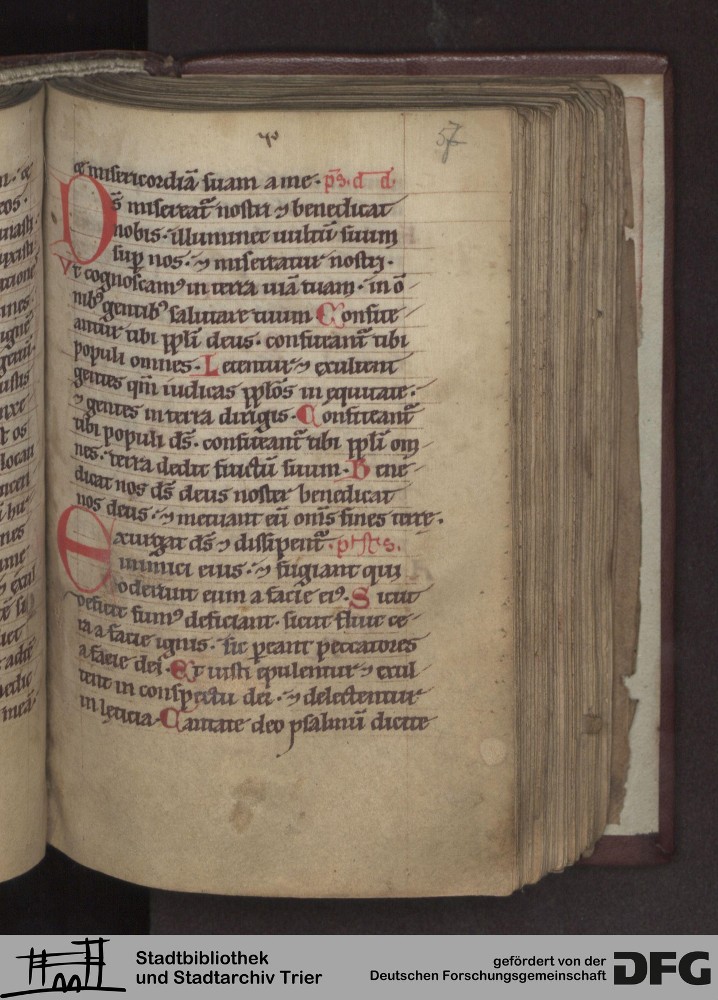 57
⁊ misericordiā suam a me. ps. d d.
Ds̄ misereat᷑ nostri ⁊ benedicat
nobis. illuminet uultū suum
sup nos. ⁊ misereatur nostri.
Vt cognoscamꝰ in terra uiā tuam. in ō
nibꝰ gentibꝰ salutare tuum. Confite
antur tibi ppl̄i deus. confiteant᷑ tibi
populi omnes. Letentur ⁊ exultent
gentes qm̄ iudicas ppl̄os in equitate.
⁊ gentes in terra dirigis. Confiteant᷑
tibi populi ds̄. confiteant᷑ tibi ppl̄i om
nes. terra dedit fructū suum. Bene
dicat nos ds̄ deus noster benedicat
nos deus. ⁊ metuant eū om̄s fines terre.
Exurgat ds̄ ⁊ dissipent᷑.
inimici eius. ⁊ fugiant qui
oderunt eum a facie eiꝰ. Sicut
deficit fumꝰ deficiant. sicut fluit ce
ra a facie ignis. sic pereant peccatores
a facie dei. Et iusti epulentur ⁊ exul
tent in conspectu dei. ⁊ delectentur
in leticia. Cantate deo psalmū dicite
Stadtbibliothek
und Stadtarchiv Trier
gefördert von der
Deutschen Forschungsgemeinschaft
DFG